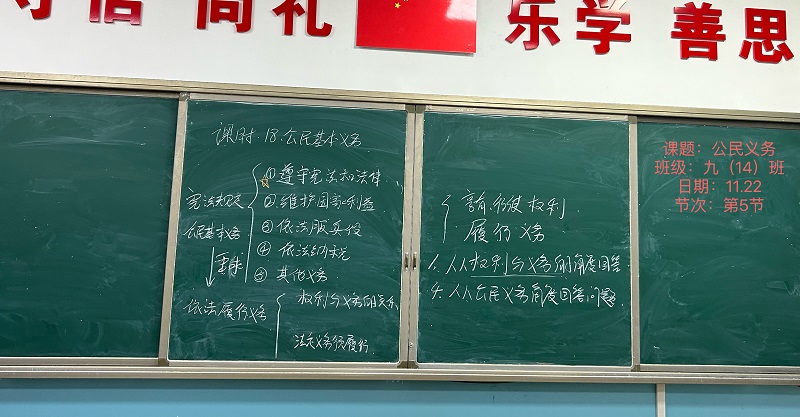 守信 尚礼 乐学 善思
课时:18.公民基本义务
宪法规定
公民基本义务
①遵守宪法和法律
②维护国家利益
③依法服兵役
④依法纳税
⑤其他义务
要求
依法履行义务
权利与义务的关系
法定义务须履行
行使权利
履行义务
1.从权利与义务的角度回答
4.从公民义务角度回答问题.
课题：公民义务
班级：九（14）班
日期：11.22
节次：第5节